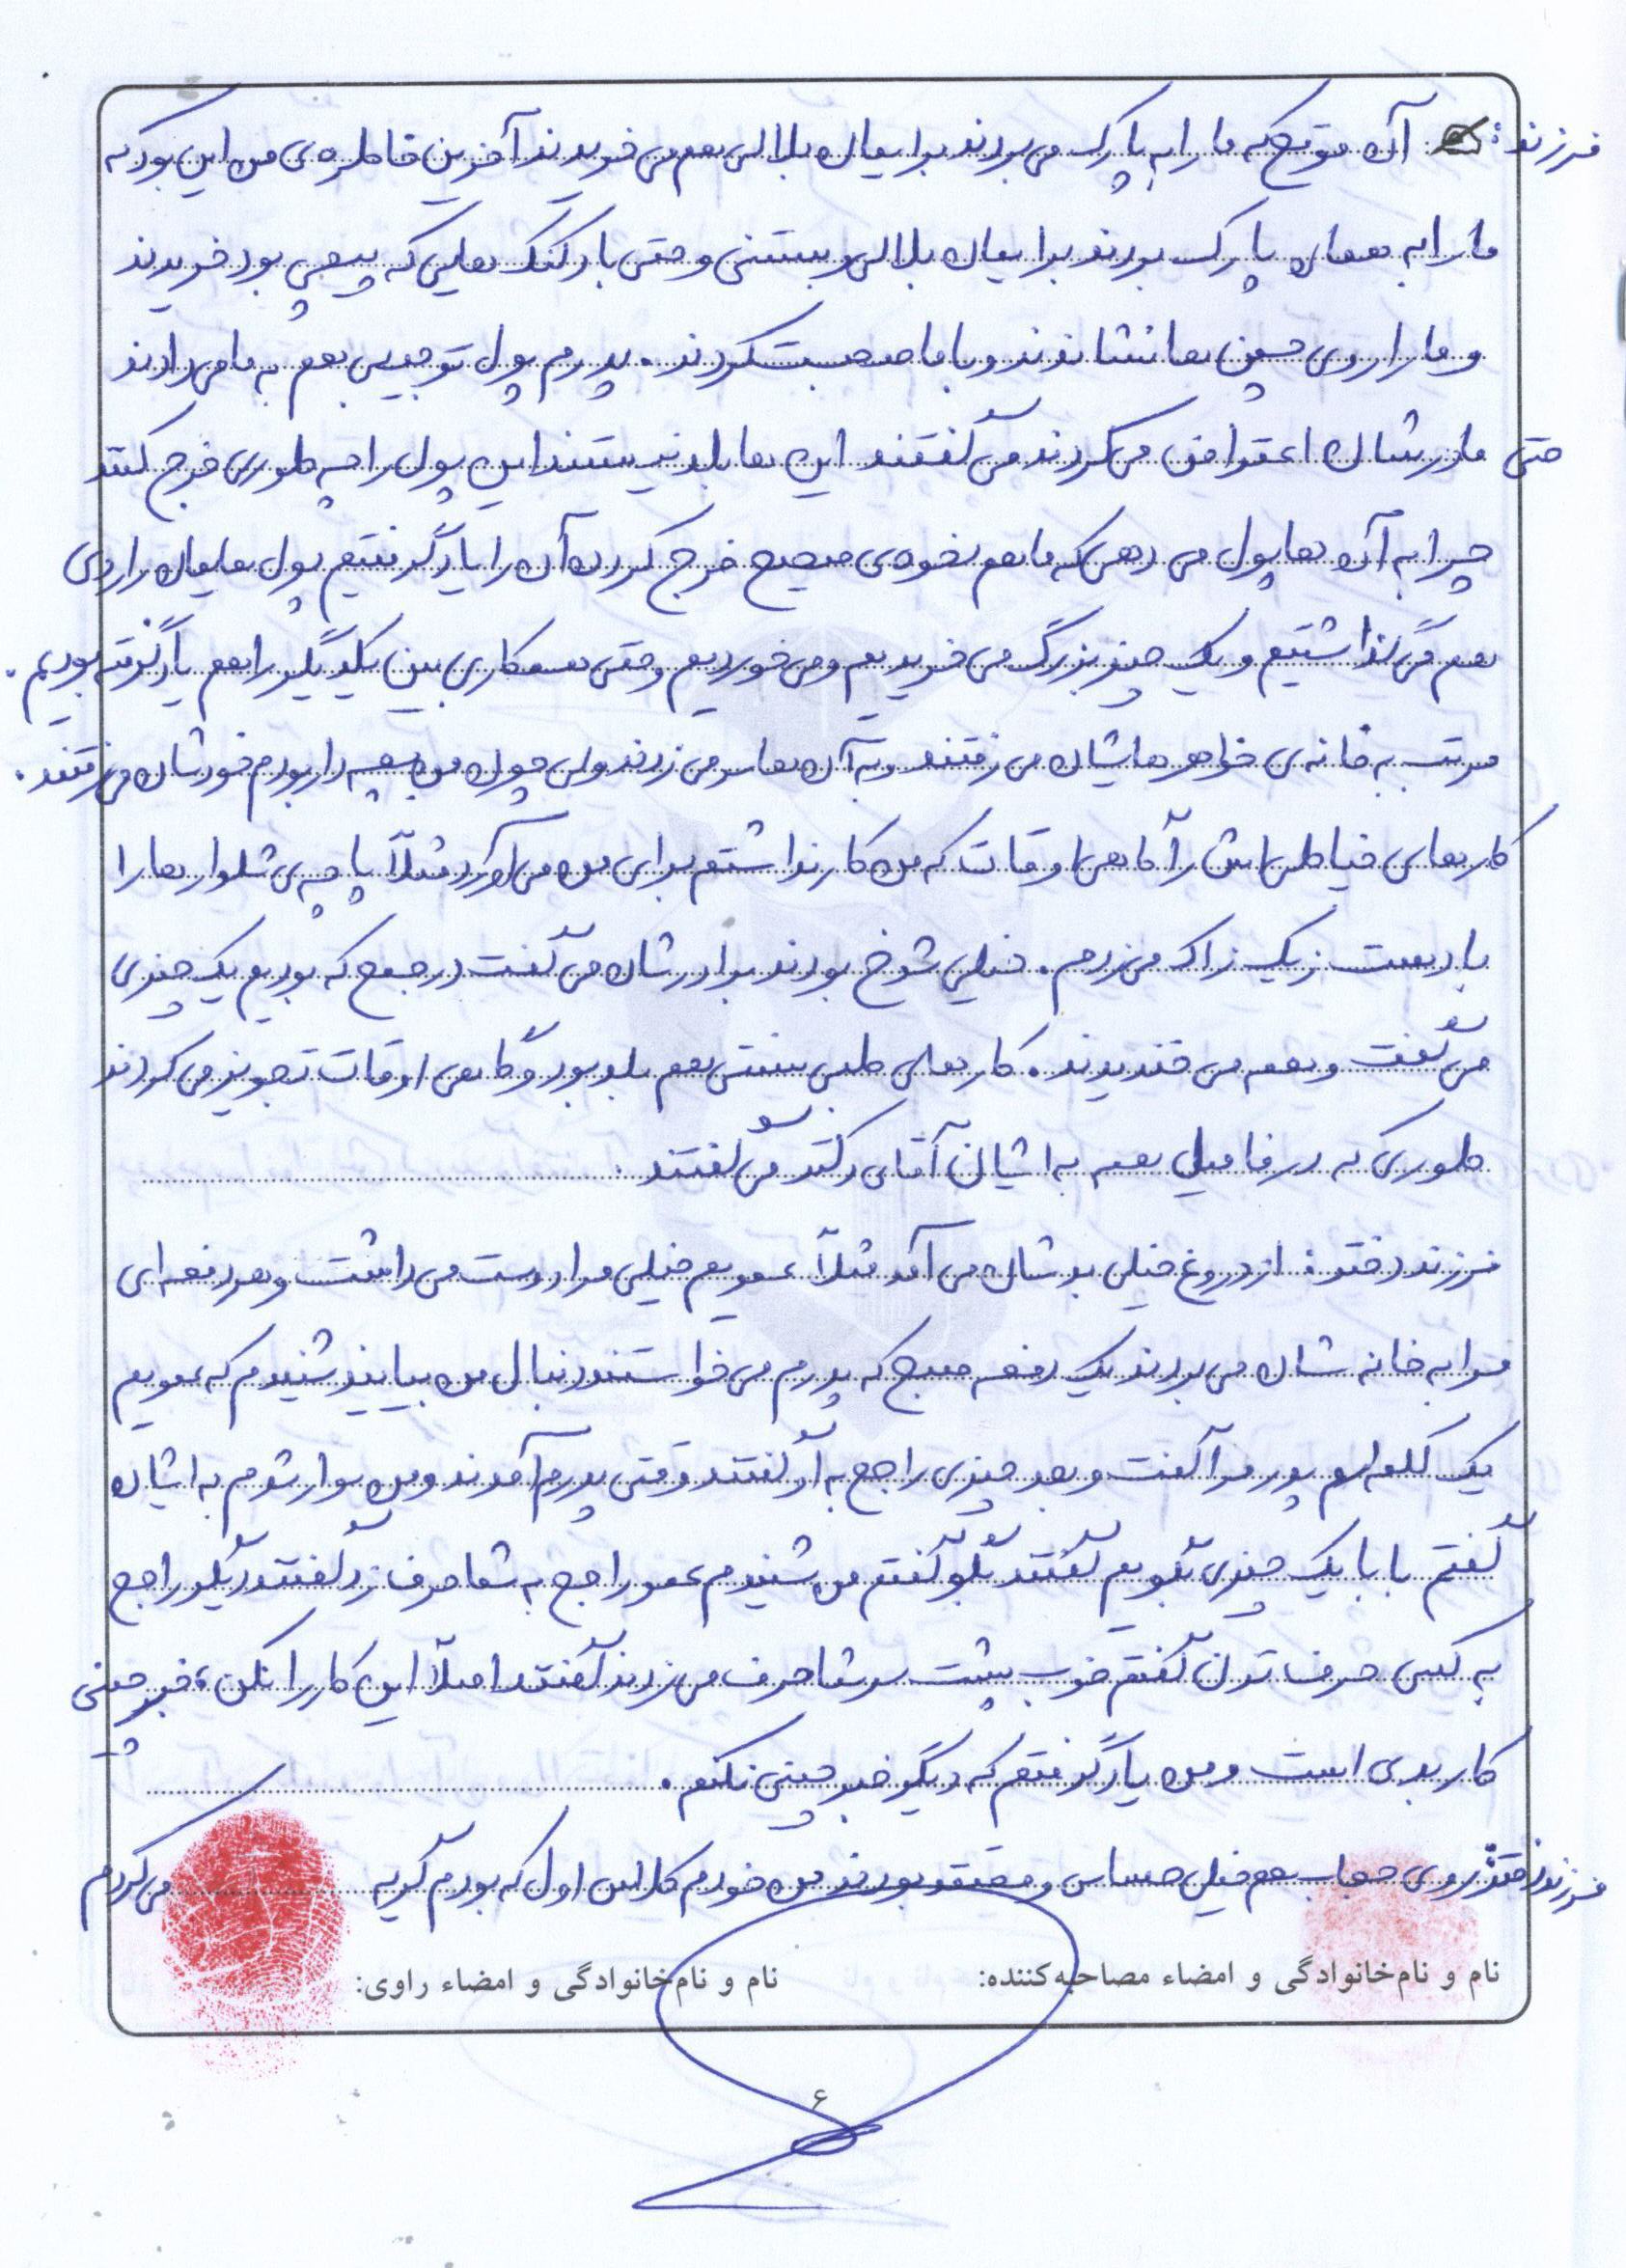 فرزند: آن موقع که ما را به پارک می بردند برایمان بلالی هم می خریدند آخرین خاطره ی من این بود که
ما را به همان پارک بردند برایمان بلالی و بستنی و حتی بادکنک هایی که پیچی بود خریدند
و ما را روی چمن ها نشاندند و با ما صحبت کردند. پدرم پول تو جیبی هم به ما می دادند
حتی مادرشان اعتراض می کردند می گفتند این ها بلد نیستند این پول را چه طوری خرج کنند
چرا به آن ها پول می دهی که ما هم نحوه ی صحیح خرج کردن آن را یاد گرفتیم پول هایمان را روی
هم می گذاشتیم و یک چیز بزرگ می خریدیم و می خوردیم و حتی همکاری بین یکدیگر را هم یاد گرفته بودیم.
مرتب به خانه ی خواهرهایشان می رفتند و به آن ها سر می زدند ولی چون من بچه دار بودم خودشان می رفتند.
کارهای خیاطی اش را گاهی اوقات که من کار نداشتم برای من می آورد مثلاً پاچه ی شلوارها را
با دست زیک زاک می زدم. خیلی شوخ بودند برادرشان می گفت در جمع که بودیم یک چیزی
می گفت و همه می خندیدند. کارهای طب سنتی هم بلد بود و گاهی اوقات تجویز می کردند
طوری که در فامیل همه به ایشان آقای دکتر می گفتند.
فرزند دختر: از دروغ خیلی بدشان می آمد مثلاً عمویم خیلی مرا دوست می داشت و هر دفعه ای
مرا به خانه شان می بردند یک دفعه صبح که پدرم می خواستند دنبال من بیایند شنیدم که عمویم
یک کلمه اسم پدر مرا گفت و بعد چیزی راجع به او گفتند وقتی پدرم آمدند و من سوار شدم به ایشان
گفتم بابا یک چیزی بگویم گفتند بگو گفتم من شنیدم عمو راجع به شما حرف زد گفتند دیگر راجع
به کسی حرف نزن گفتم خوب پشت سر شما حرف می زدند گفتند اصلاً این کار را نکن، خبرچینی
کار بدی است و من یاد گرفتم که دیگر خبرچینی نکنم.
فرزند دختر: روی حجاب هم خیلی حساس و معتقد بودند من خودم کلاس اول که بودم گریه می کردم
نام و نام‌خانوادگی و امضاء مصاحبه‌کننده: نام و نام‌خانوادگی و امضاء راوی:
۶